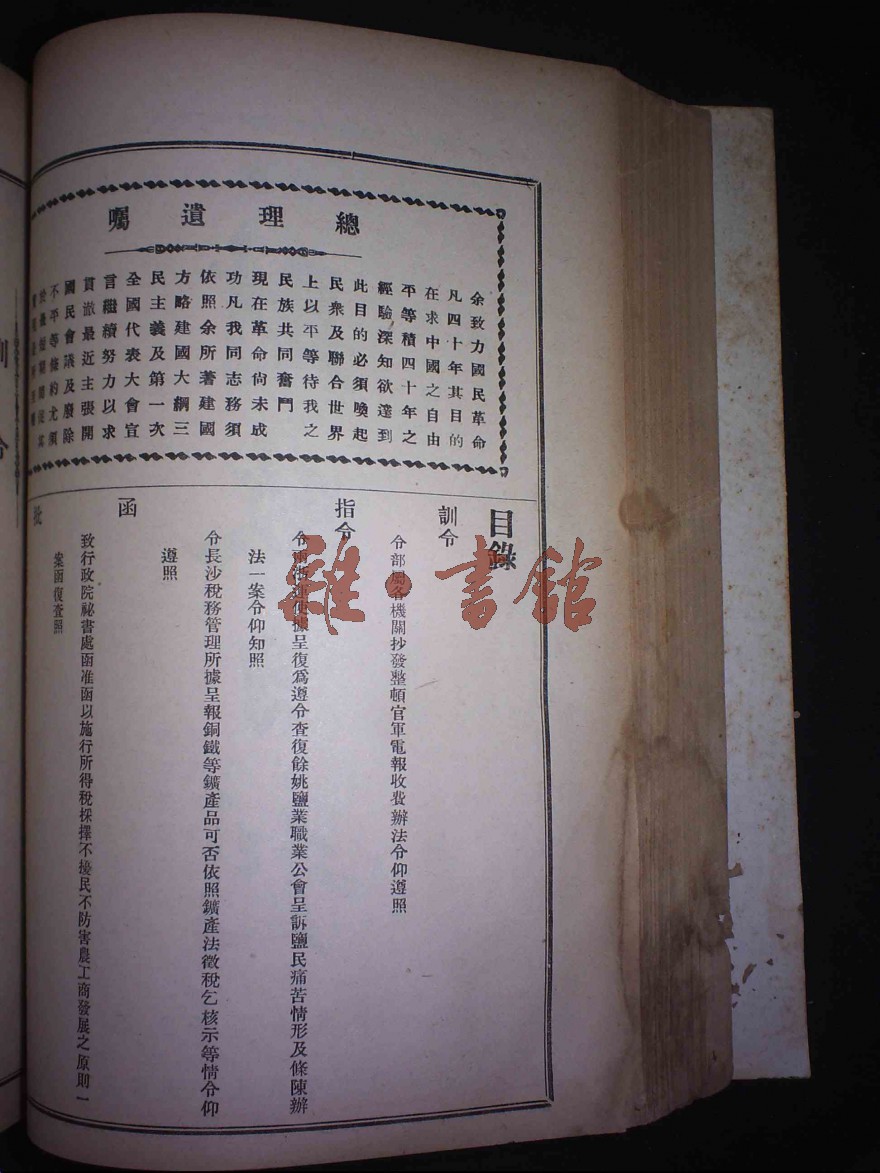 總理遺囑
余致力國民革命
凡四十年其目的
在求中國之自由
平等積四十年之
經驗深知欲達到
此目的必須喚起
民衆及聯合世界
上以平等待我之
民族共同奮鬥
現在革命尙未成
功凡我同志務須
依照余所著建國
方略建國大綱三
民主義及第一次
全國代表大會宣
言繼續努力以求
貫澈最近主張開
國民會議及廢除
不平等條約尤須
於最短期間促其
目錄
訓令
令部屬各機關抄發整頓官軍電報收費辦法令仰遵照
指令
令兩浙運使據呈復爲遵令查復餘姚鹽業職業公會呈訴鹽民痛苦情形及條陳辦
法一案令仰知照
令長沙稅務管理所據呈報銅鐵等鑛產品可否依照鑛產法徵稅乞核示等情令仰
遵照
函
致行政院祕書處函准函以施行所得稅採擇不擾民不防害農工商發展之原則一
案函復查照
批
訓令
雜·書館